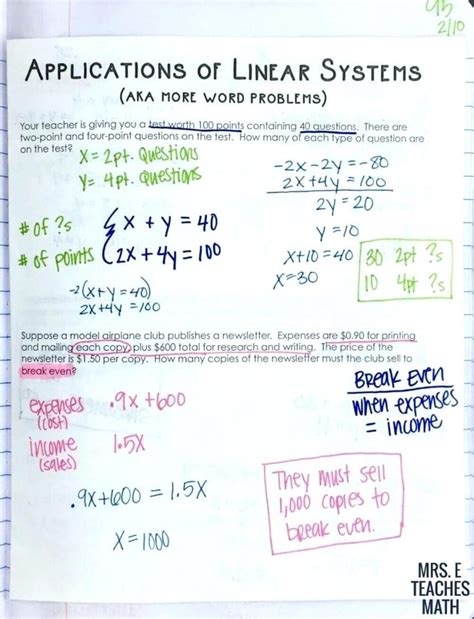 93
2/10
APPLICATIONS OF LINEAR SYSTEMS
(AKA MORE WORD PROBLEMS)
Your teacher is giving you a test worth 100 points containing 40 questions. There are
two-point and four-point questions on the test. How many of each type of question are
on the test?
X = 2pt. Questions
Y = 4pt. Questions
# of ?s
# of points
x + y = 40
2x + 4y = 100
-2(x+y=40)
2x+4y=100
-2x-2y=-80
2x+4y=100
2y=20
y=10
x+10=40
x=30
30 2pt ?s
10 4pt ?s
Suppose a model airplane club publishes a newsletter. Expenses are $0.90 for printing
and mailing each copy, plus $600 total for research and writing. The price of the
newsletter is $1.50 per copy. How many copies of the newsletter must the club sell to
break even?
expenses
(cost)
.9x+600
income
(sales)
1.5x
.9x+600 = 1.5x
X=1000
BREAK EVEN
when expenses
= income
They must sell
1,000 copies to
break even.
MRS. E
TEACHES
MATH